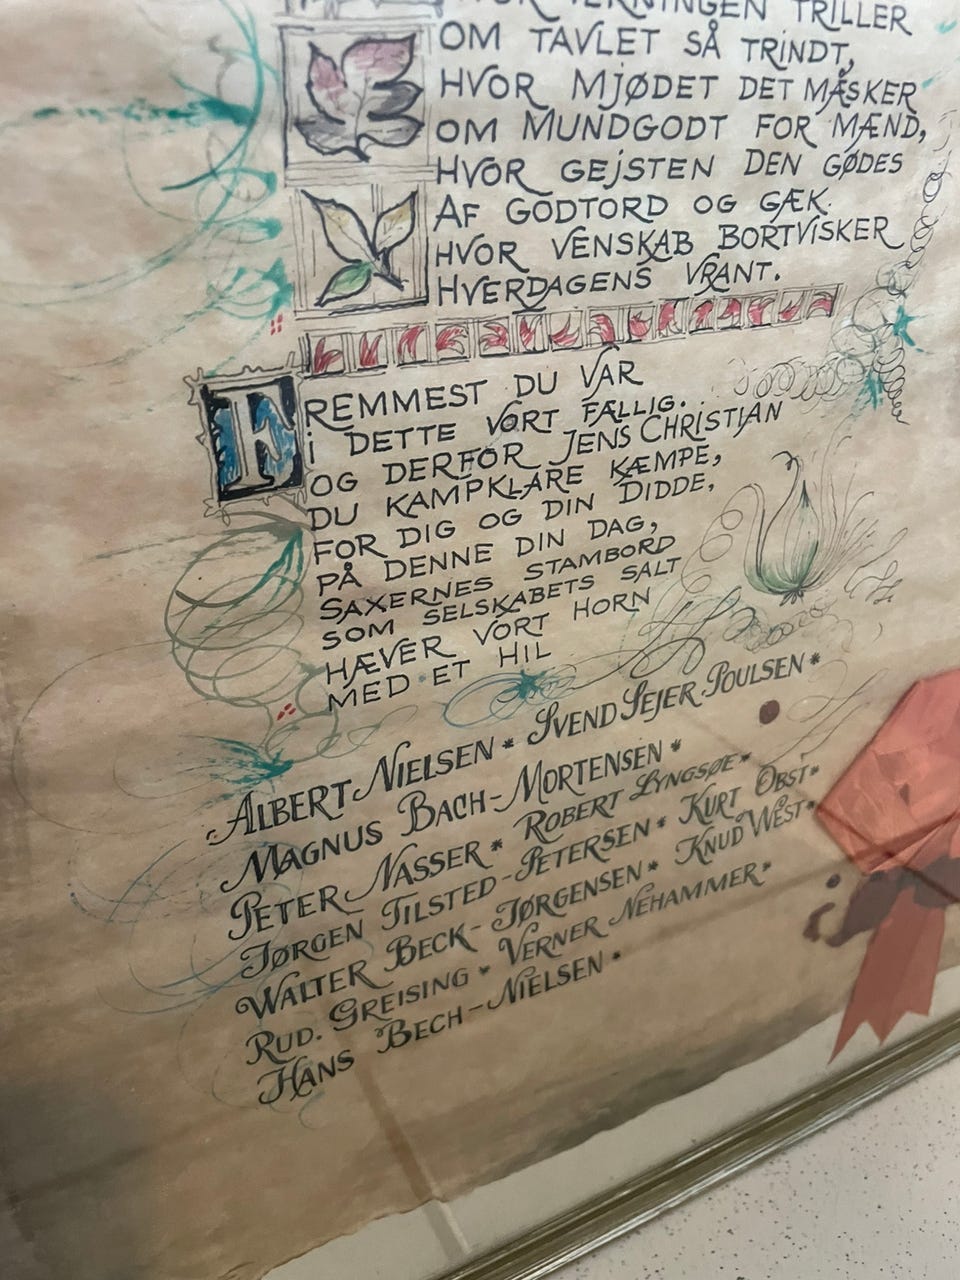 TERNINGEN TRILLER
OM TAVLET SÅ TRINDT,
HVOR MJØDET DET MÅSKER
OM MUNDGODT FOR MÆND,
HVOR GEJSTEN DEN GØDES
AF GODTORD OG GÆK.
HVOR VENSKAB BORTVISKER
HVERDAGENS VRANT.
FREMMEST DU VAR
i DETTE VORT FÆLLIG.
OG DERFOR JENS CHRISTIAN
DU KAMPKLARE KÆMPE,
FOR DIG OG DIN DIDDE,
PÅ DENNE DIN DAG,
SAXERNES STAMBORD
SOM SELSKABETS SALT
HÆVER VORT HORN
MED ET HIL
ALBERT NIELSEN * SVEND SEJER POULSEN *
MAGNUS BACH-MORTENSEN *
PETER NASSER * ROBERT LYNGSØE *
JØRGEN TILSTED-PETERSEN * KURT OBST *
WALTER BECK-JØRGENSEN * KNUD WEST *
RUD. GREISING * VERNER NEHAMMER *
HANS BECH-NIELSEN *